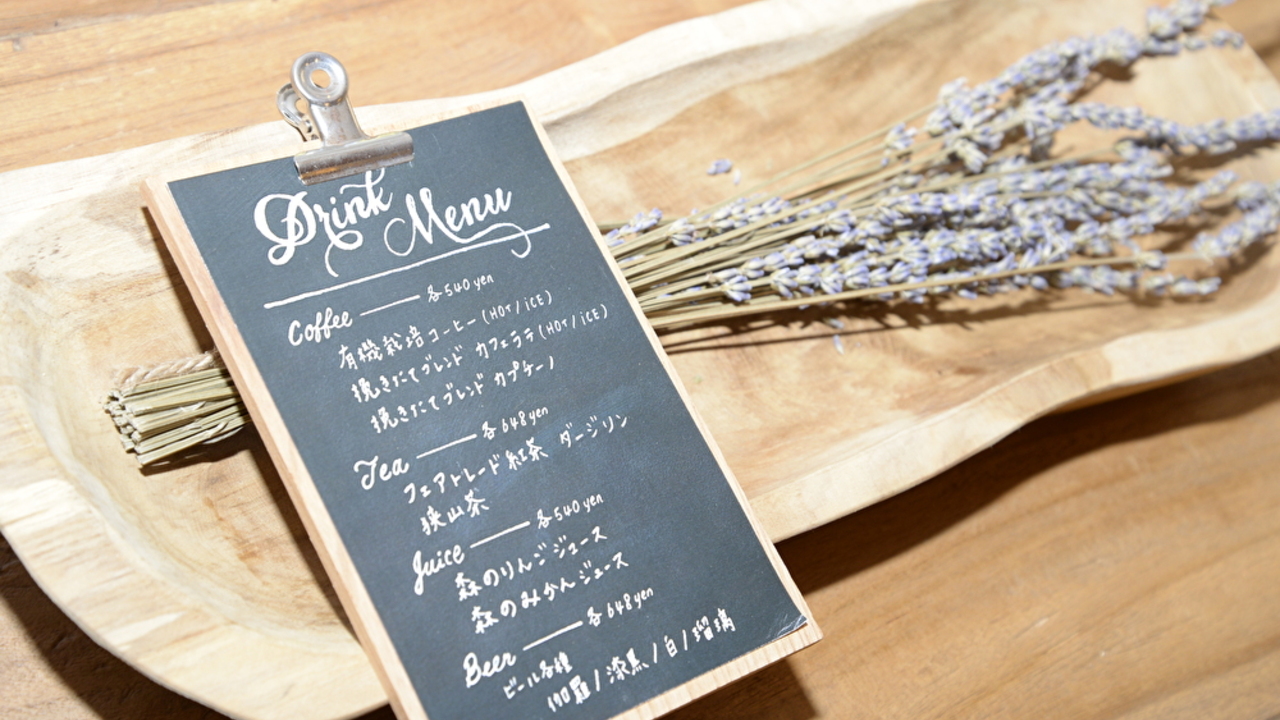 Drink Menu
Coffee —— 各540yen
有機栽培コーヒー(HOT/iCE)
挽きたてブレンド カフェラテ(HOT/iCE)
挽きたてブレンド カプチーノ
Tea —— 各648yen
フェアトレード紅茶 ダージリン
狭山茶
Juice —— 各540yen
森のりんごジュース
森のみかんジュース
Beer —— 各648yen
ビール各種
伽羅/漆黒/白/瑠璃